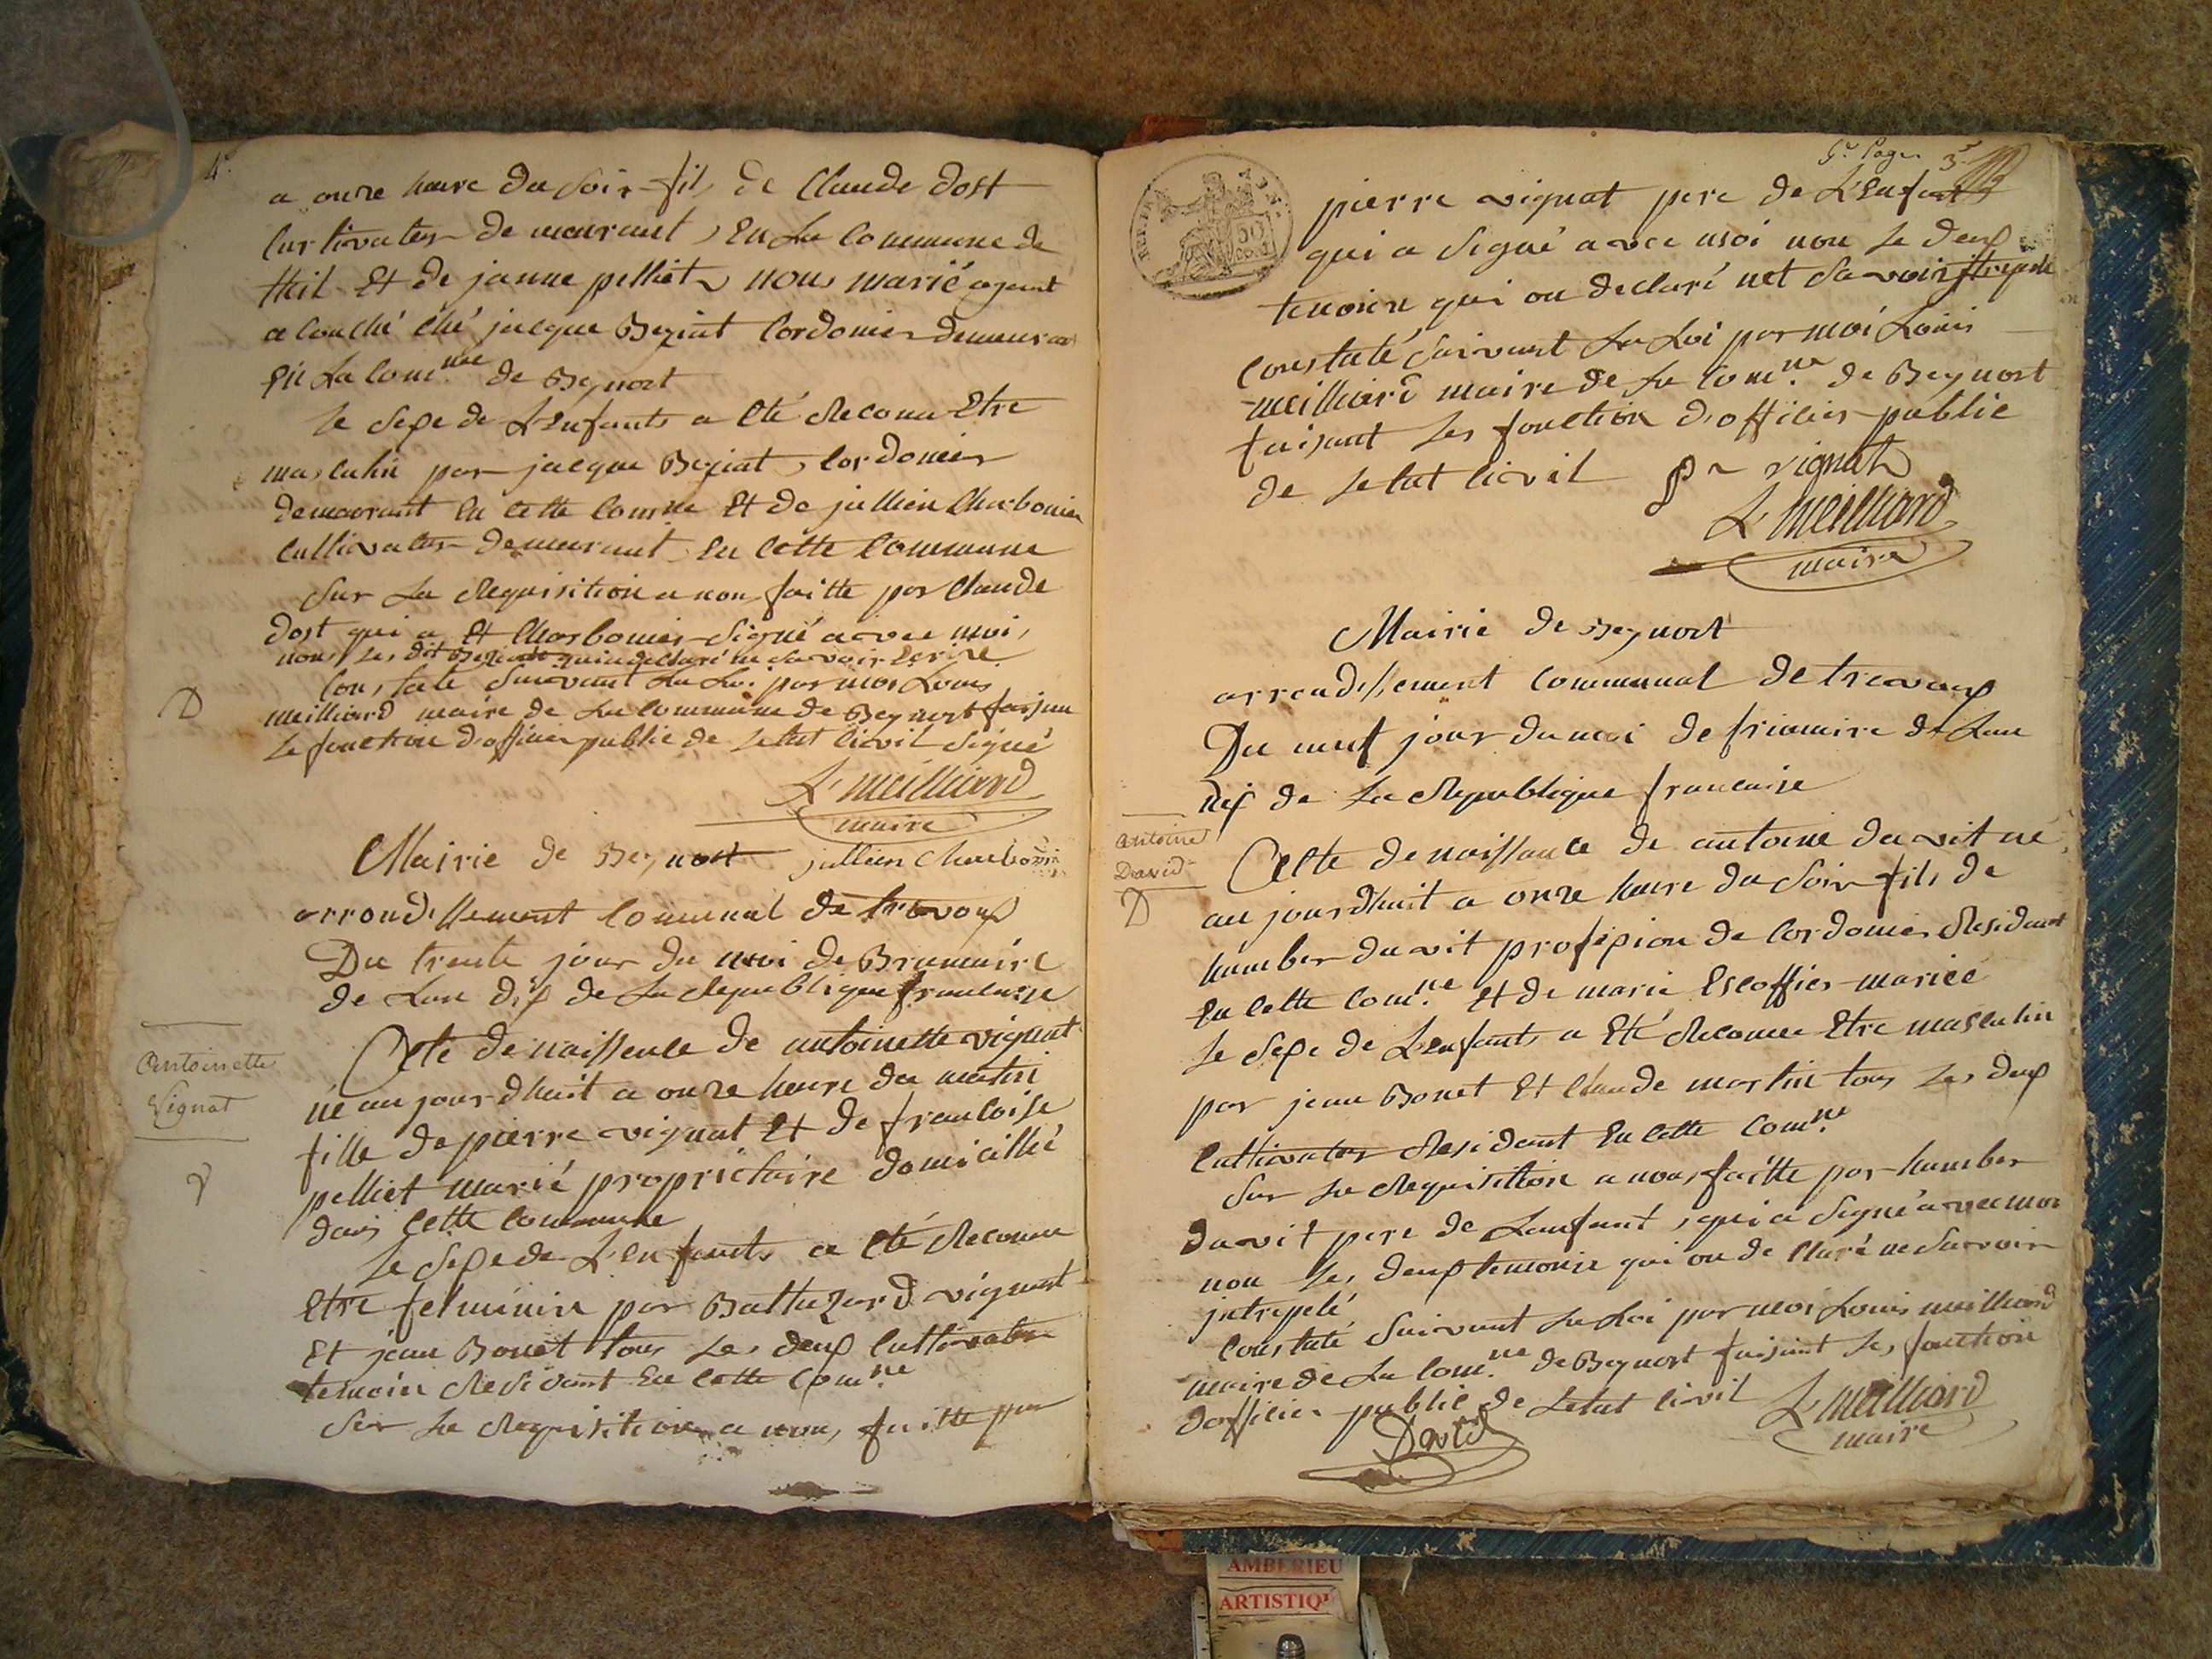 4.
a onze heure du soir fils de Claude dost
Curtivateur demeurant, en La Commune de
thil Et de janne pelliet, nous marié ayant
a Couché ché jacque Beziat Cordonier demeurant
En La Com.ne de Beynost
Le Sexe de L'enfants a Eté Reconu Etre
masculin par jacque Beziat, Cordonier
demeurant En Cette Comune Et de jullien Charbonier
Cultivateur demeurant En Cette Commune
Sur La Requisition a nous faitte par Claude
dost qui a Et Charbonier Signé avec moi,
non Les dit Beziat qui a declaré ne Savoir Ecrire
Constaté Suivant La Loi par moi Louis
D
meilliard maire de La Commune de Beynost faisan
Le fonction d'officier public de Letat Civil Signé
L. Meilliard
maire
Mairie de Beynost jullien Charbonier
arrondissement Comunal de trevoux
Du trente jour du moi de Brumaire
de Lan dix de La Republique francaise
Antoinette
Vignat
V
Acte de naissence de antoinette vignat
né aujourdhuit a onze heure du matin
fille de pierre vignat Et de francoise
pelliet marié proprietaire domicillié
dans Cette Commune
Le Sexe de L'enfants a Eté Reconu
Etre feminin par Balthazard vignat
Et jean Bonet tous Les deux Cultivateur
temoin Residant En Cette Com.ne
Sur La Requisition a nous faitte par
5e Page 3
pierre vignat pere de L'Enfant
qui a Signé avec moi non Le deux
temoien qui on declaré net Savoir
Constaté Suivant La Loi par moi Louis
meilliard maire de La Com.ne de Beynost
faisant Les fonction d'officier public
de Letat Civil pr vignat
L. Meilliard
maire
Mairie de Beynost
arrondissement Communal de trevoux
Du neuf jour du moi de frimaire de Lan
dix de La Republique francaise
antoine
David
D
Acte de naissance de antoine davit né
aujourdhuit a onze heure du Soir fils de
humber davit profession de Cordonier Residant
En Cette Com.ne Et de marie Escoffier mariée
Le Sexe de L'enfants a Eté Reconu Etre masculin
par jean Bonet Et Claude martin tous Les deux
Cultivateur Residant En Cette Com.ne
Sur La Requisition a nous faitte par humber
davit pere de Lanfant, qui a Signé avec moi
non Les deux temoin qui on declaré ne Savoir
jntrepelé
Constaté Suivant La Loi par moi Louis meilliard
maire de La Com.ne de Beynost faisant Les fonction
dofficier public de Letat Civil L. Meilliard
David maire
AMBERIEU
ARTISTIQ